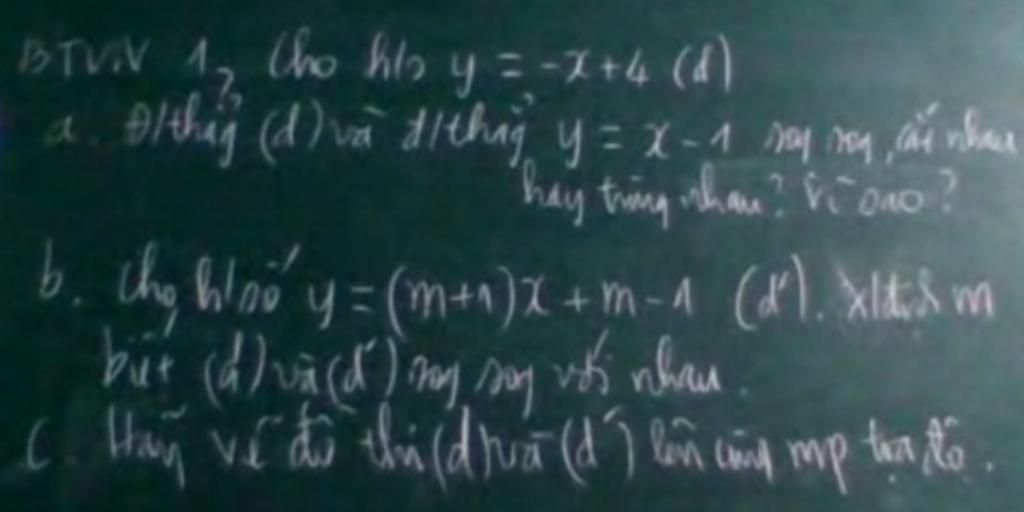 BTVN 1, Cho h/s y = -x+4 (d)
a. đ/thẳg (d) và đ/thẳg y = x - 1 sog sog, cắt nhau
hay trùng nhau? Vì sao?
b. Cho h/số y = (m+1)x + m - 1 (d'). X/định m
biết (d) và (d') sog sog với nhau.
c. Hãy vẽ đồ thị (d) và (d') lên cùng mp tọa độ.